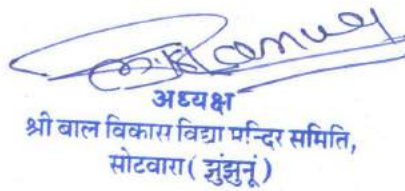 अध्यक्ष
श्री बाल विकास विद्या मन्दिर समिति,
सोटवारा ( झुंझुनूं )